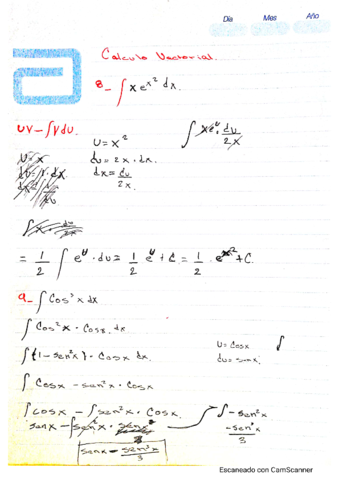 Día Mes Año
Calculo Vectorial.
8- ∫ x e^{x^2} dx.
UV - ∫V du.
U = x^2
du = 2x · dx.
dx = du/2x.
∫ x e^u · du/2x
= 1/2 ∫ e^u · du = 1/2 e^u + C = 1/2 · e^{x^2} + C.
9- ∫ Cos^3 x dx
∫ Cos^2 x · Cosx. dx
∫ {1 - sen^2 x} · Cosx dx.
∫ Cosx - sen^2 x · Cosx
U = Cosx ∫
du = senx.
∫ Cosx - ∫ sen^2 x · Cosx.
∫ - sen^2 x
- sen^3 x / 3
senx - sen^3 x / 3
Escaneado con CamScanner